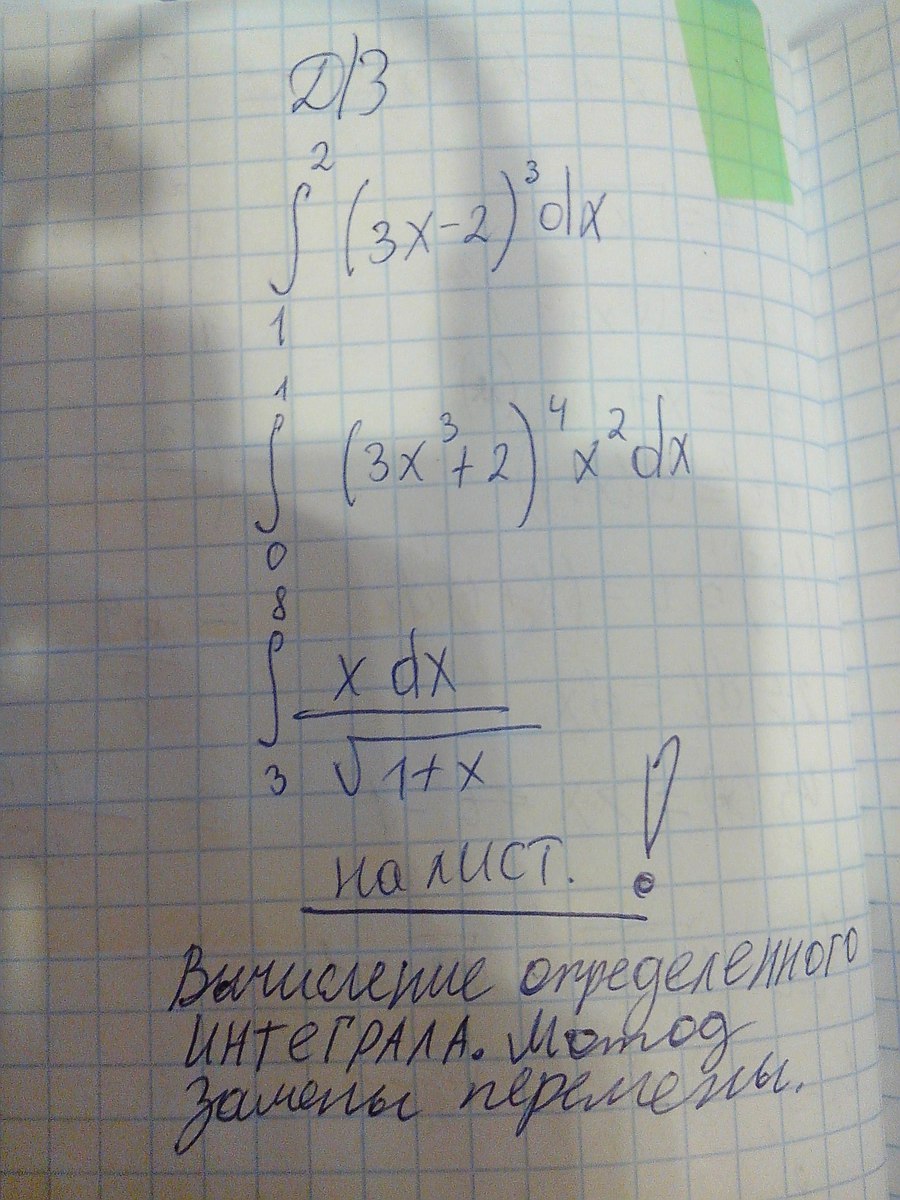 Д/З
∫₁² (3x-2)³dx
∫₀¹ (3x³+2)⁴x²dx
∫₃⁸ x dx / √1+x
на лист. !
Вычисление определенного
ИНТЕГРАЛА. Метод
Замены перемены.